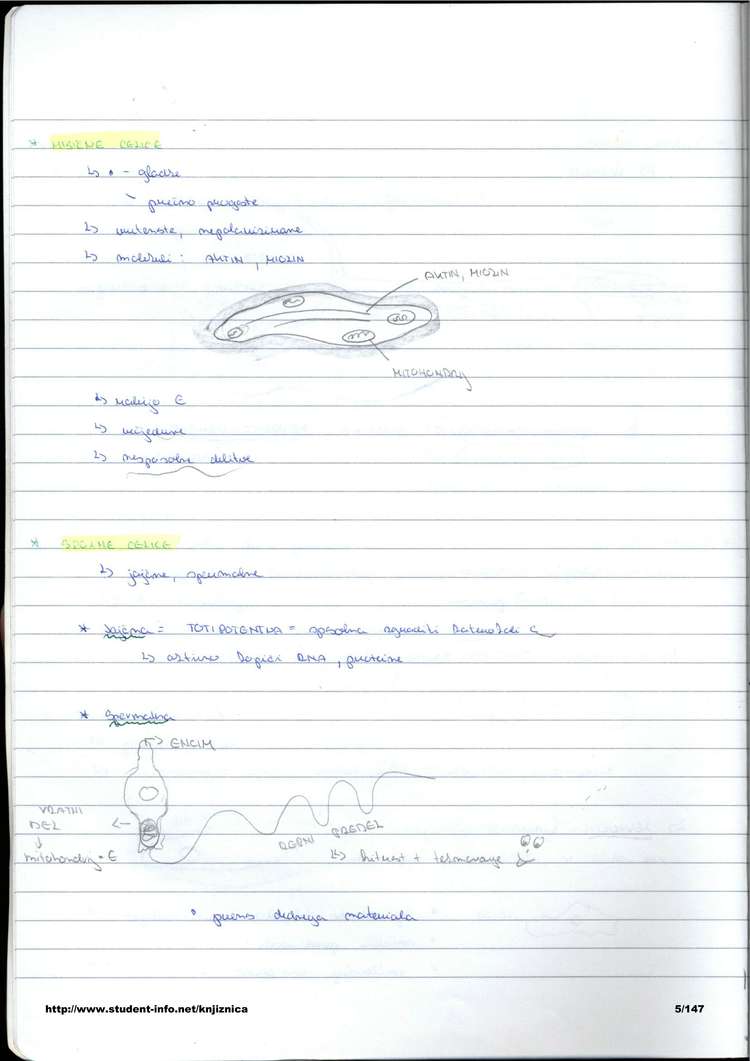 * MIŠIČNE CELICE
↳ • - gladke
- prečno progaste
↳ vretenaste, nepolarizirane
↳ molekuli: AKTIN, MIOZIN
AKTIN, MIOZIN
MITOHONDRIJ
↳ rabijo E
↳ vzjedrne
↳ nesposobne delitve
* SPOLNE CELICE
↳ jajčne, spermalne
* Jajčna = TOTIPOTENTNA = sposobna zgraditi katerokoli C
↳ aktivno kopiči RNA, proteine
* Spermalna
→ ENCIM
VRATNI
DEL
↓
mitohondrij = E
REPNI PREDEL
↳ hitrost + tekmovanje
• prenos dednega materiala
http://www.student-info.net/knjiznica
5/147